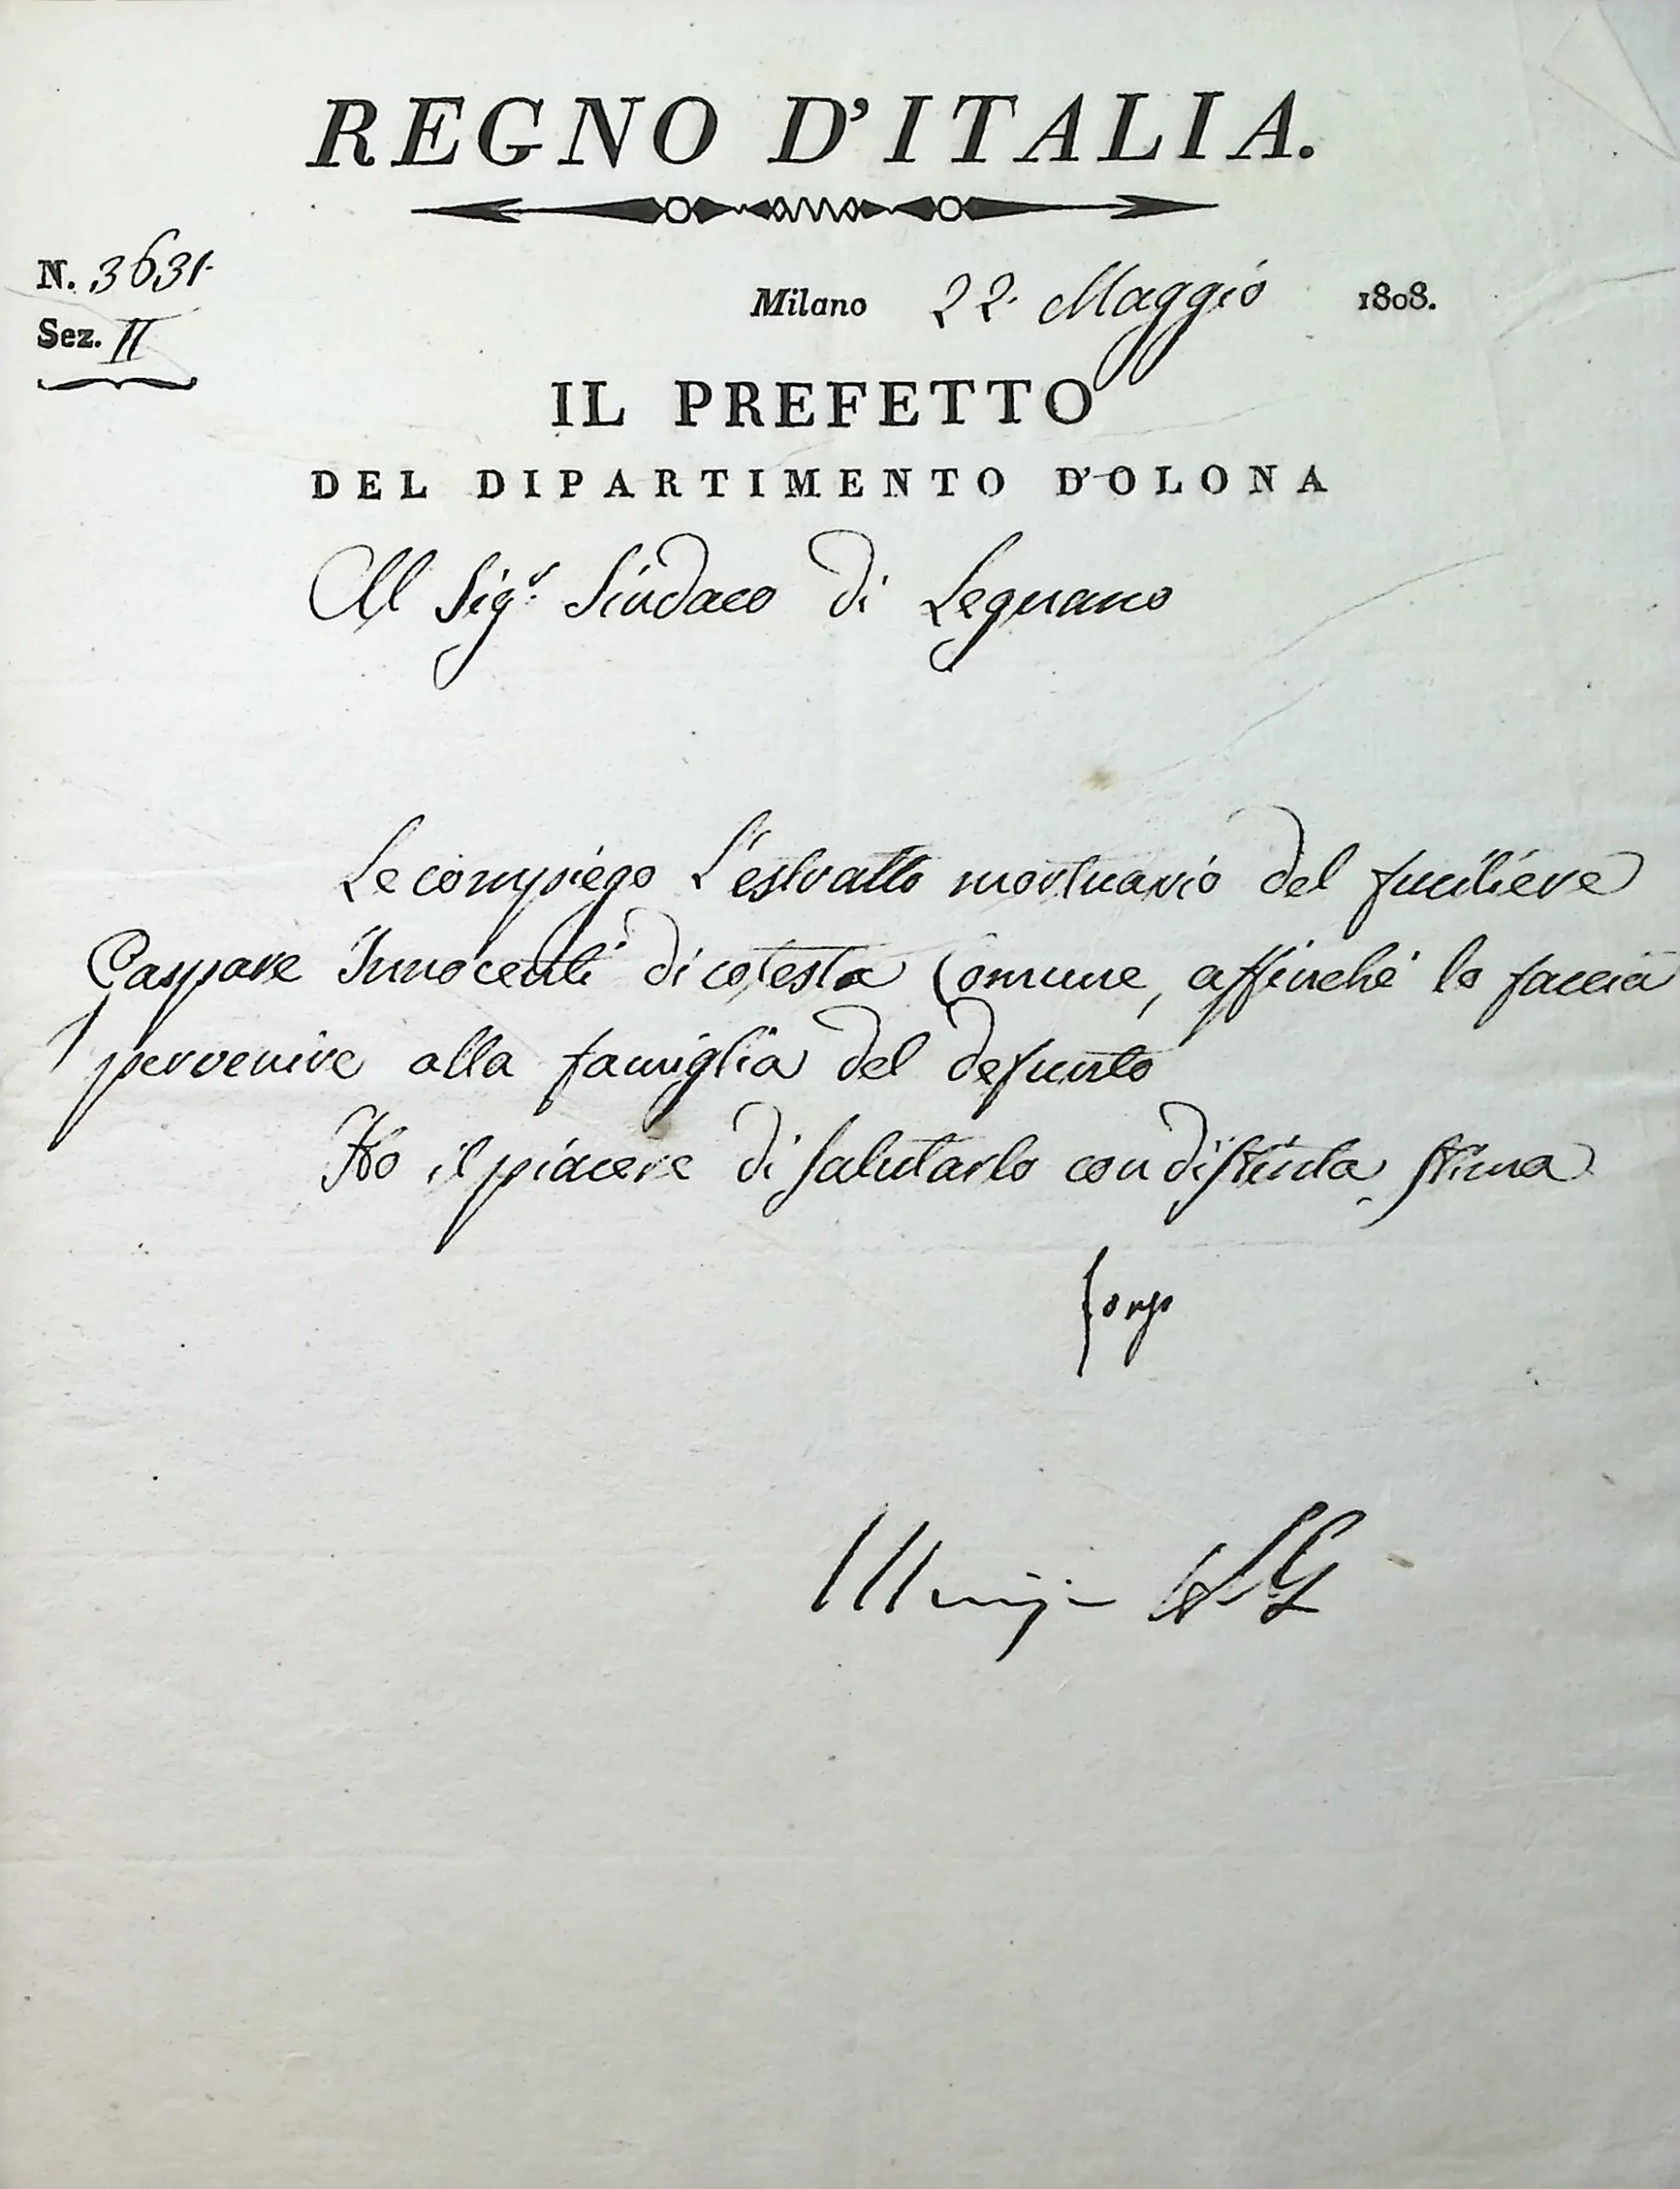 REGNO D'ITALIA.
N. 3631.
Milano 22. Maggio 1808.
Sez. II
IL PREFETTO
DEL DIPARTIMENTO D'OLONA
Al Sigr. Sindaco di Legnano
Le compiego L'estratto mortuario del fuciliere
Gaspare Innocenti di cotesta Comune, affinchè lo faccia
pervenire alla famiglia del defunto
Ho il piacere di salutarlo con distinta stima